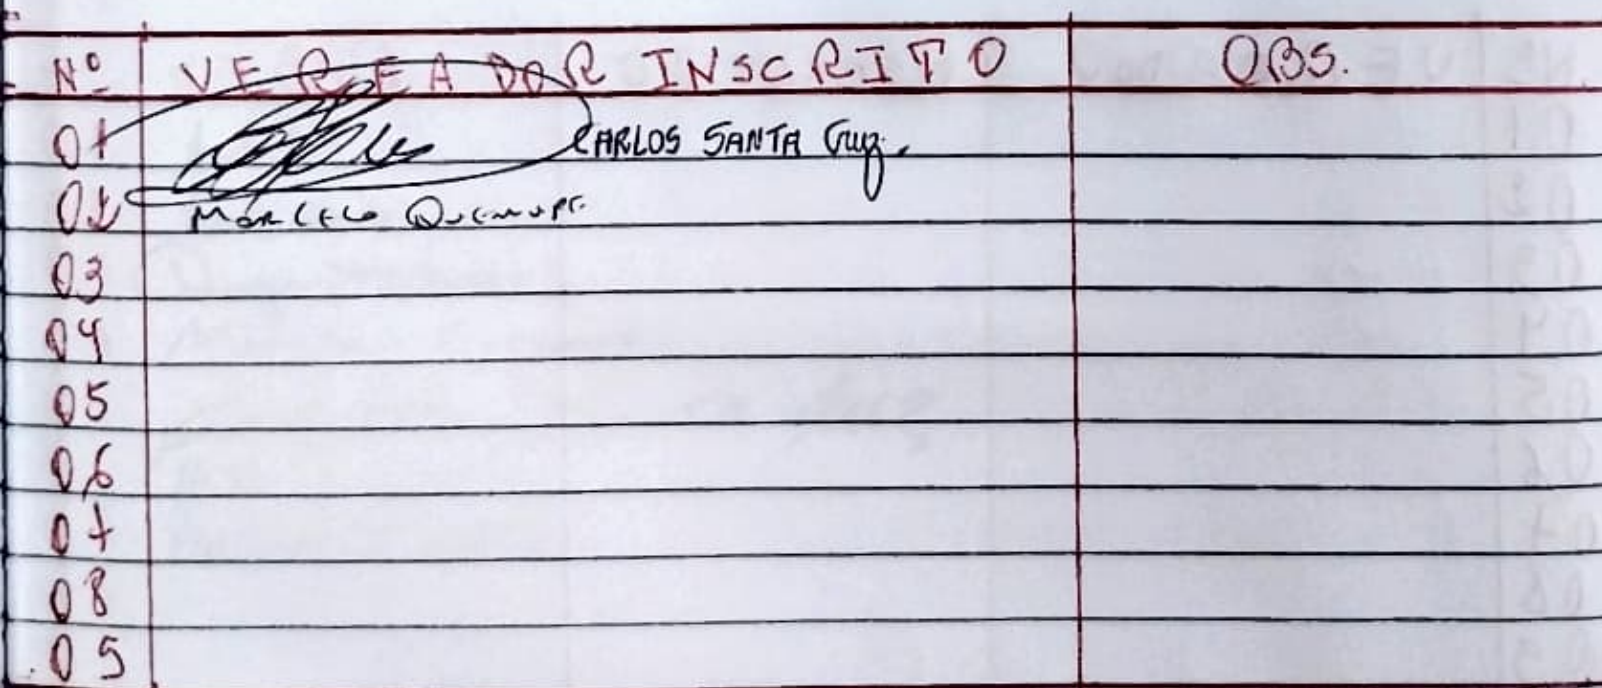 Nº VEREADOR INSCRITO OBS.
01 CARLOS SANTA Cruz.
02 MARCELO
03
04
05
06
07
08
09